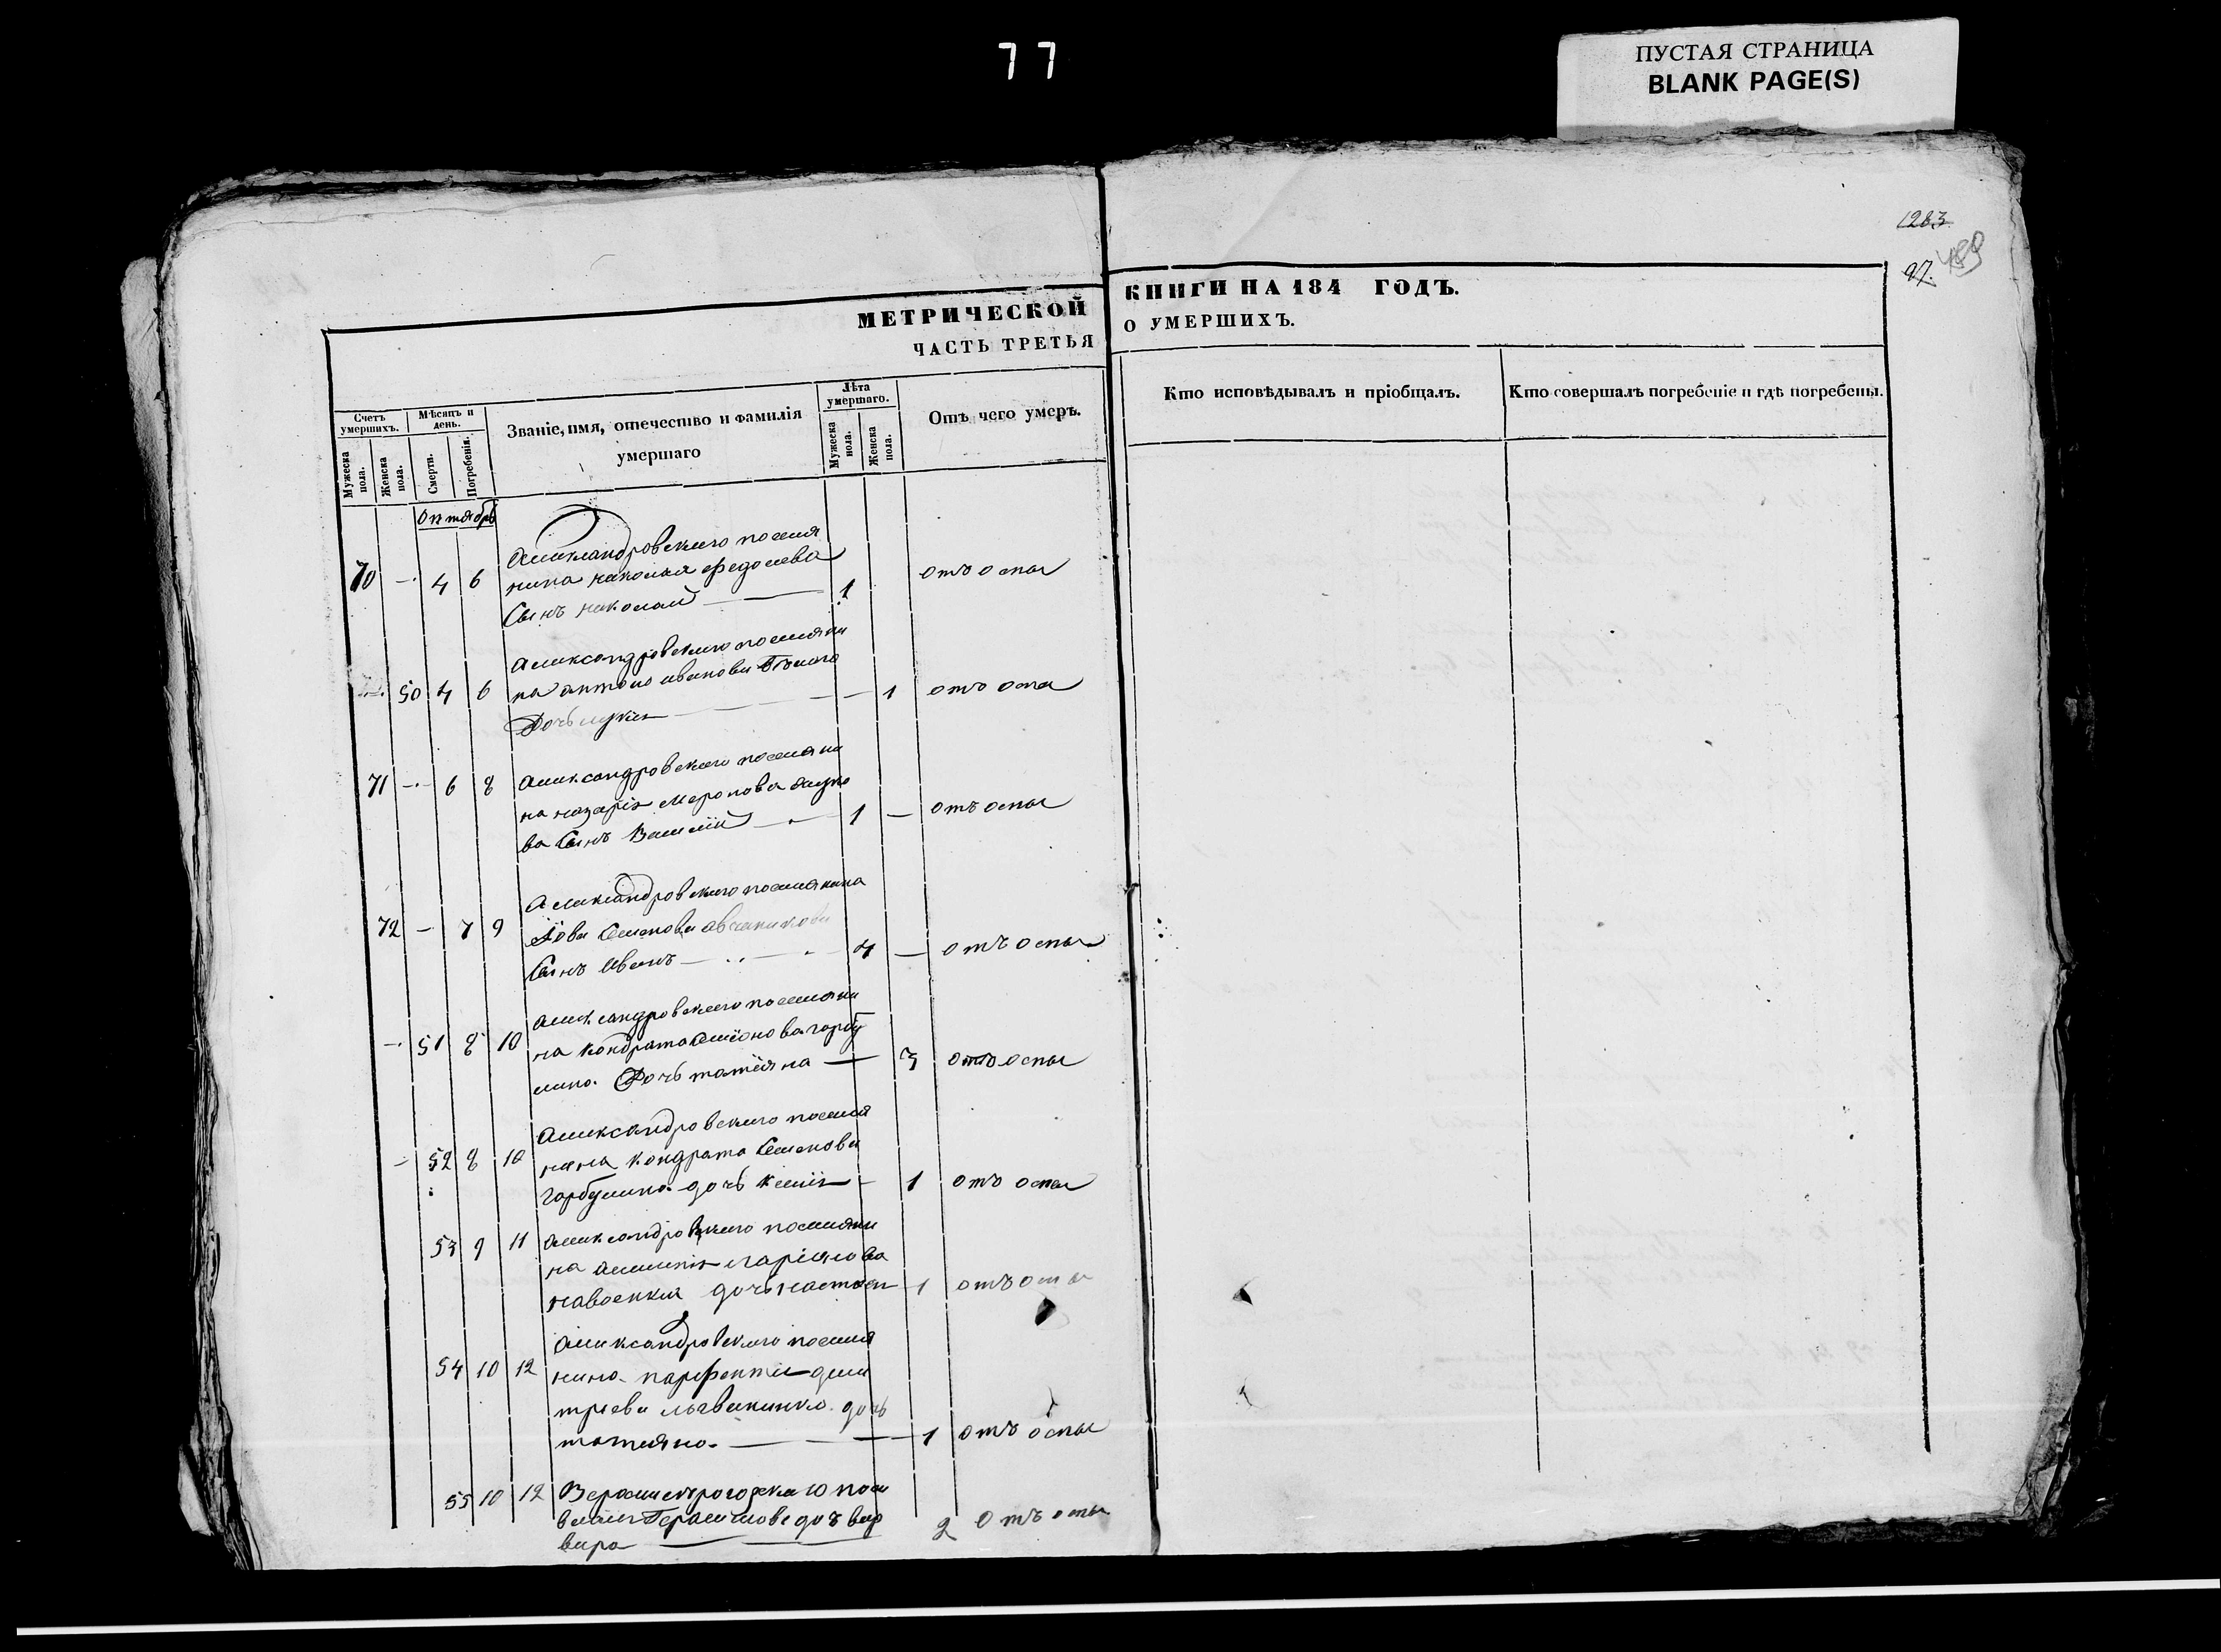 77
ПУСТАЯ СТРАНИЦА
BLANK PAGE(S)
1283
97.
489
МЕТРИЧЕСКОЙ КНИГИ НА 184 ГОДЪ.
ЧАСТЬ ТРЕТЬЯ О УМЕРШИХЪ.
Счетъ умершихъ.
Мужеска пола.
Женска пола.
Мѣсяцъ и день.
Смерти.
Погребенія.
Званіе, имя, отечество и фамилія
умершаго
Лѣта умершаго.
Мужеска пола.
Женска пола.
Отъ чего умеръ.
Кто исповѣдывалъ и пріобщалъ.
Кто совершалъ погребеніе и гдѣ погребены.
Октябрь
Александровскаго поселя
70 — 4 6 нина николая федосева отъ оспы
Сынъ николай — 1
Александровскаго поселяни
50 4 6 на антона иванова
Дочь — 1 отъ оспы
71 — 6 8 Александровскаго поселяни
на назарія
ва Сынъ Василій — 1 — отъ оспы
Александровскаго поселянина
72 — 7 9 Іова Семенова
Сынъ Иванъ — 4 — отъ оспы
Александровскаго поселяни
— 51 8 10 на кондрата Семіонова горбу
лина Дочь татіяна — 3 отъ оспы
Александровскаго поселя
— 52 8 10 нина кондрата Семенова
горбулина дочь — 1 отъ оспы
53 9 11 Александровскаго поселяни
на
дочь настасія 1 отъ оспы
Александровскаго поселя
54 10 12 нина парфентія дми
тріева дочь
татіяна — 1 отъ оспы
55 10 12
Герасимова дочь вар
вара — 2 отъ оспы